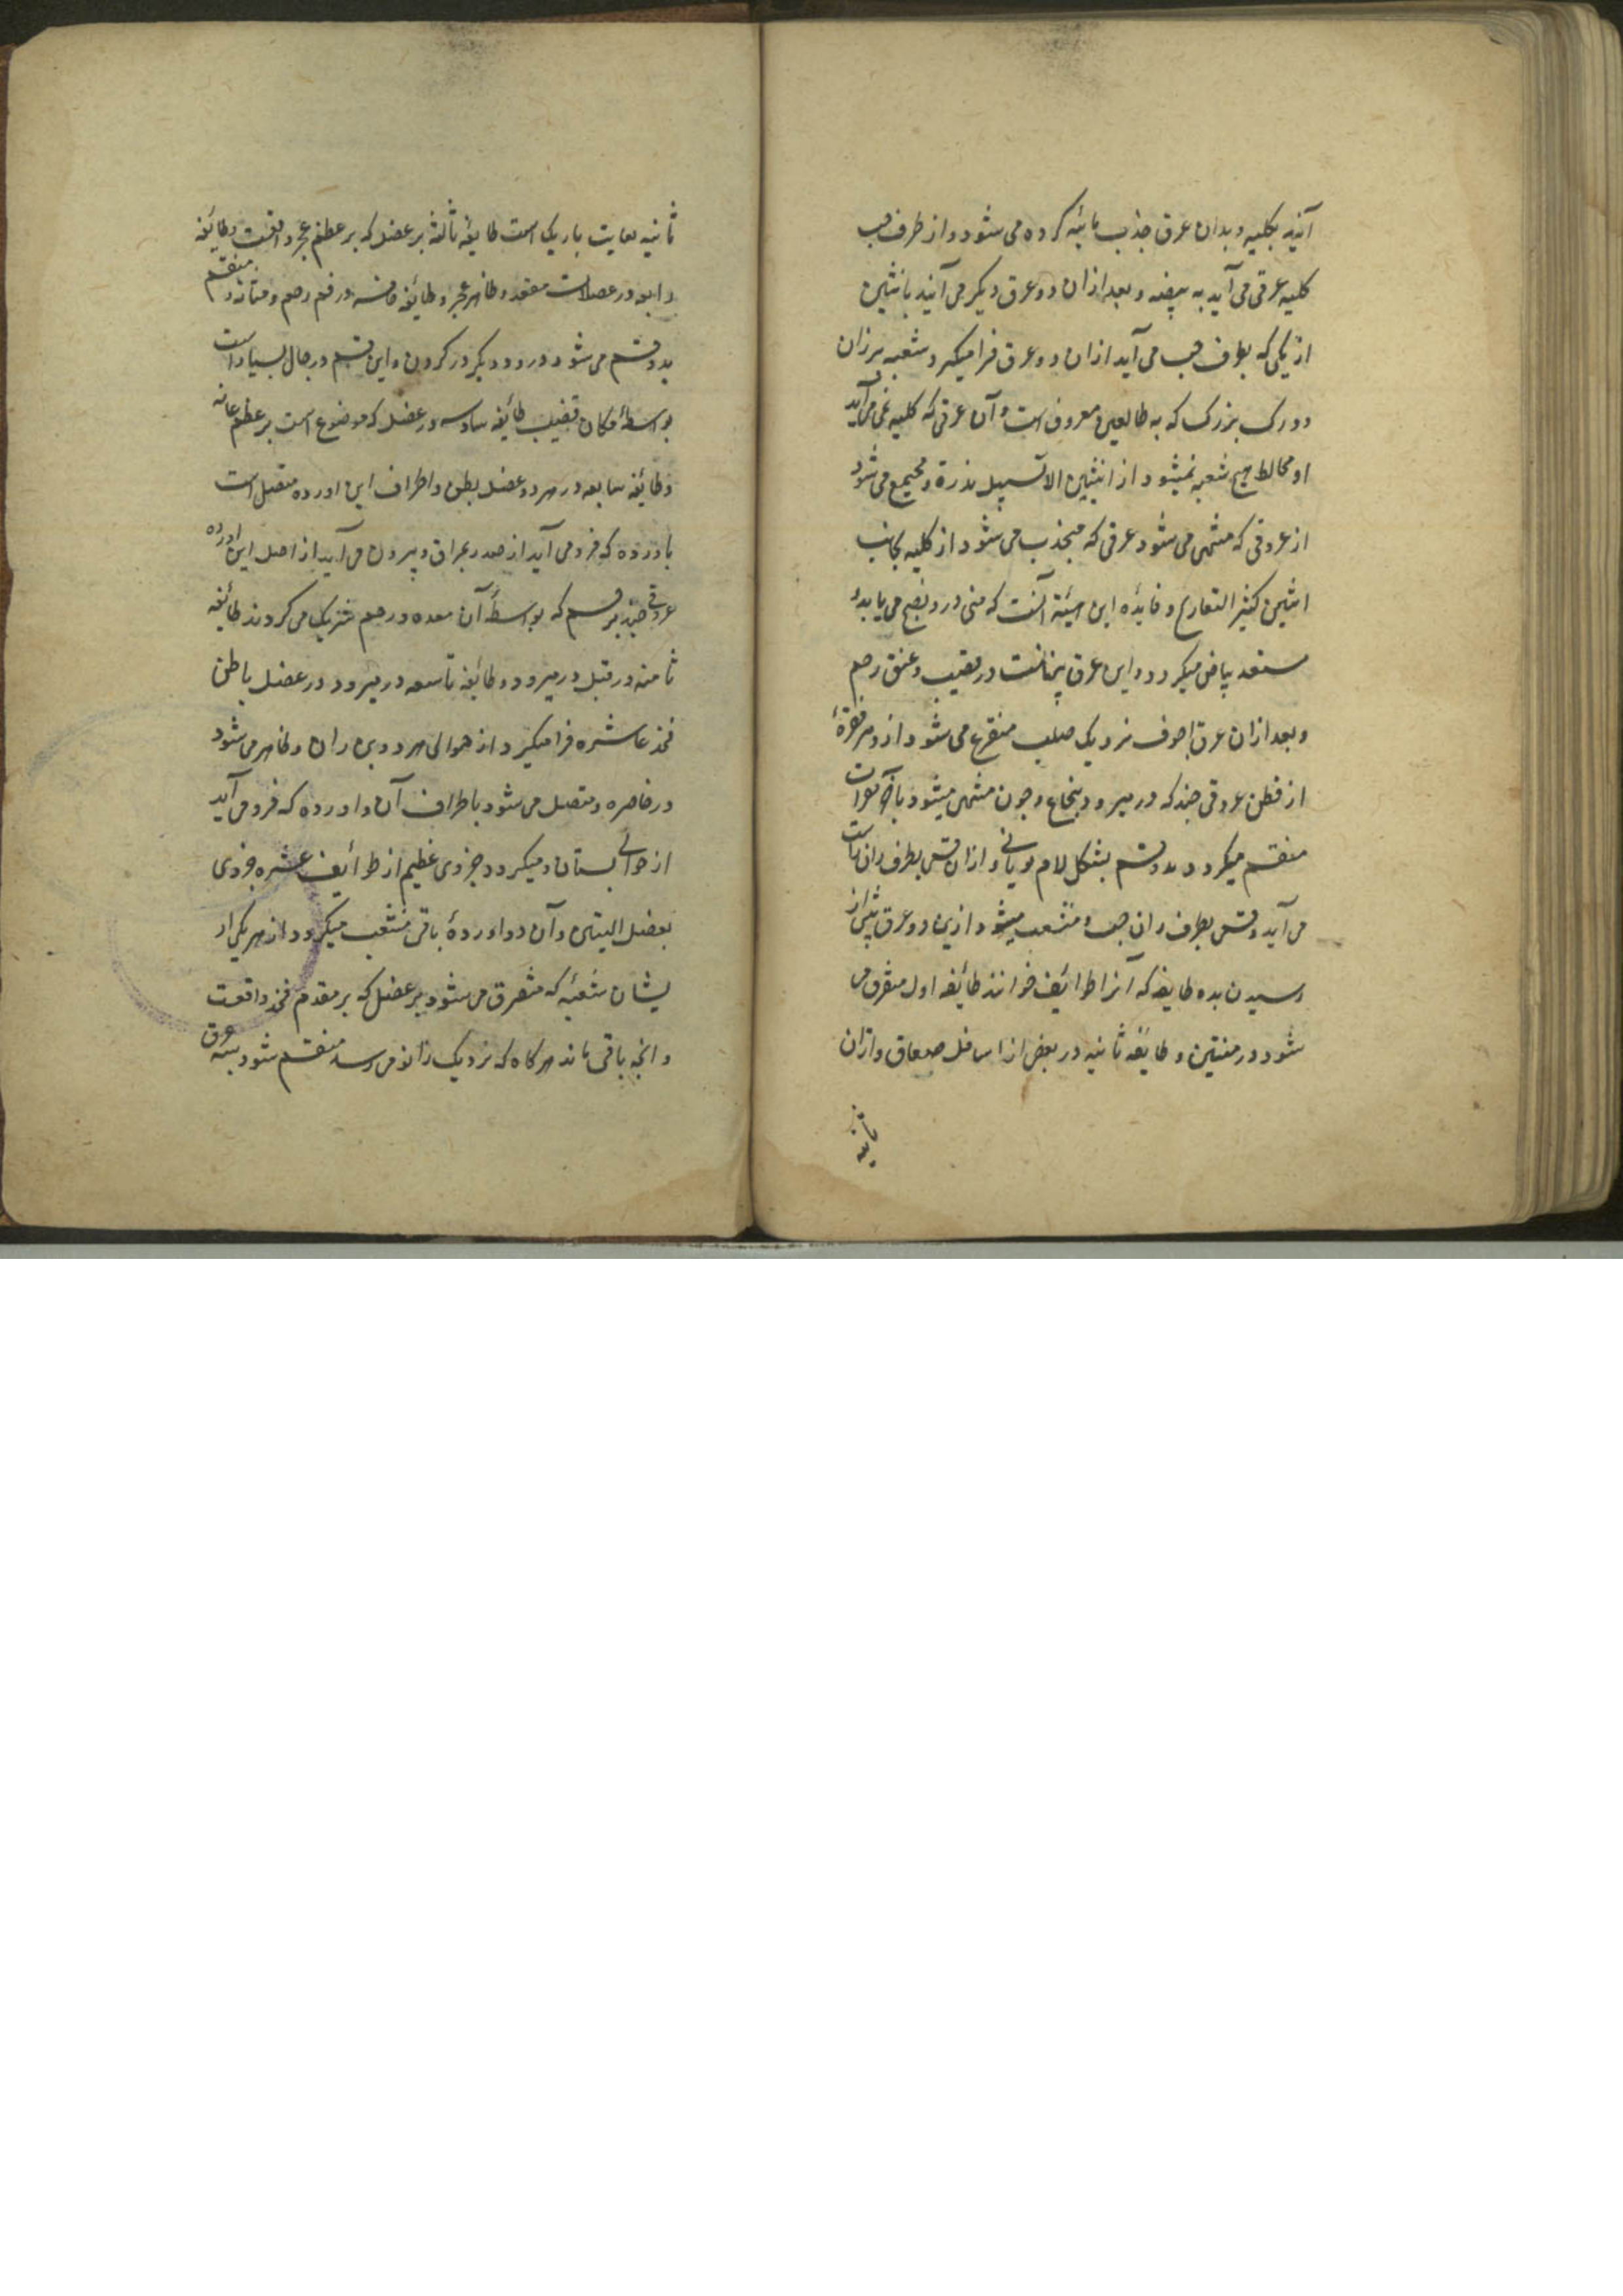 آیند بکلیه و بدان عرق جذب مائیه کرده می شود و از طرف چپ
کلیه عرقی می آید به بیضه و بعد از ان دو عرق دیگر می آیند بانثیین
از یکی که بطرف چپ می آید از ان دو عرق فرا میگیرد شعبه
دو رک بزرک که به طالعین معروف است و آن عرقی که کلیه می آید
او مخالط هیچ شعبه نمیشود از انثیین الا بسبیل ندرة و مجتمع می شود
از عروقی که منتهی می شود عرقی که منجذب می شود از کلیه بجانب
انثیین کثیر التعاریج و فایده این هیئة آنست که منی درو نضج می یابد و
مستعد بیاض میکردد و این عرق پنهانست در قضیب و عنق رحم
و بعد از ان عرق اجوف نزدیک صلب متفرع می شود از و هر فقرهٔ
از قطن عروقی چند که در میرود بنخاع و چون منتهی میشود بآخر فقرات
منقسم میکردد بدو قسم بشکل لام یونانی و از ان قسمی بطرف ران راست
می آید و قسمی بطرف ران چپ و منشعب میشود ازین دو عرق پیش از
رسیدن بده طایفه که آنرا طوائف خوانند طائفه اول متفرق می
شود در متنین و طایفه ثانیه در بعض از اسافل صفاق و ازان
ثانیه
ثانیه بغایت باریک است طایفه ثالثه بر عضل که بر عظم عجز واقعست و طایفه
رابعه در عضلات مقعد و ظاهر عجز و طائفه خامسه در فم رحم و مثانه و منقسم
بدو قسم می شود درو و دیکر در کردن و این قسم در رجال بسیار است
بواسطهٔ مکان قضیب طائفه سادسه در عضل که موضوع است بر عظم عانه
و طائفه سابعه در هر دو عضل بطن و اطراف این اورده متصل است
باورده که فرو می آید از صدر بمراق و بیرون می آید از اصل این اورده
عروقی چند برحم که بواسطهٔ آن معده و رحم شریک می کردند طائفه
ثامنه در قبل در میرود و طائفه تاسعه در میرود در عضل باطن
فخذ عاشره فرا میگیرد از حوالی هر دو بن ران و ظاهر می شود
در خاصره و متصل می شود باطراف آن و اورده که فرو می آید
از حوالی بستان و میکردد جزوی عظیم از طوائف عشره جزوی
بعضل الیتین و آن دو اوردهٔ باقی منشعب میکردد از هر یکی از
یشان شعبهٔ که متفرق می شود بر عضل که بر مقدم فخذ واقعست
و انچه باقی ماند هر کاه که نزدیک زانو می رسد منقسم شود بسه عرق